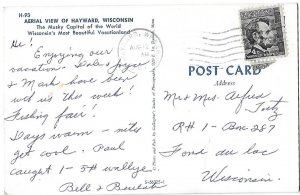 H-93
AERIAL VIEW OF HAYWARD, WISCONSIN
The Musky Capital of the World
Wisconsin's Most Beautiful Vacationland
Hi!
Enjoying our
vacation. & Joyce
& Mark have been
with us this week!
Fishing fair!
Days warm - nites
get cool - Paul
caught 1 - 5# walleye
Bell & Beulah
POST CARD
Address
Mr & Mrs. Alfred
R#1 - Box 287
Fond du lac
Wisconsin.